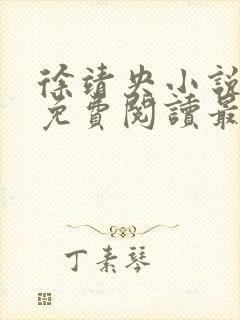 徐靖央小說
免費閱讀最
丁素琴